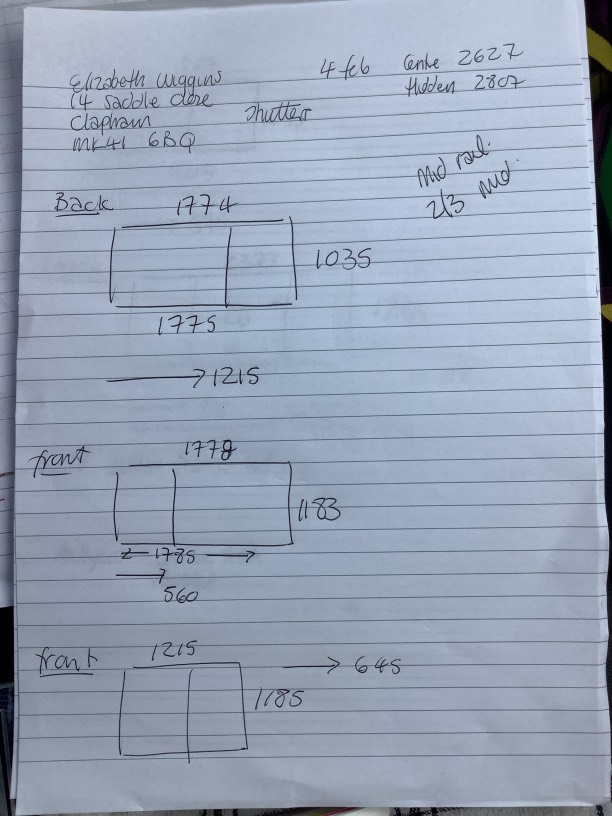 Elizabeth Wiggins
14 Saddle close
Clapham
MK41 6BQ
Shutters
4 feb
Centre 2627
Hidden 2807
Mid rail.
2/3 mid.
Back
1774
1035
1775
1215
front
1778
1183
1785
560
front
1215
645
1185